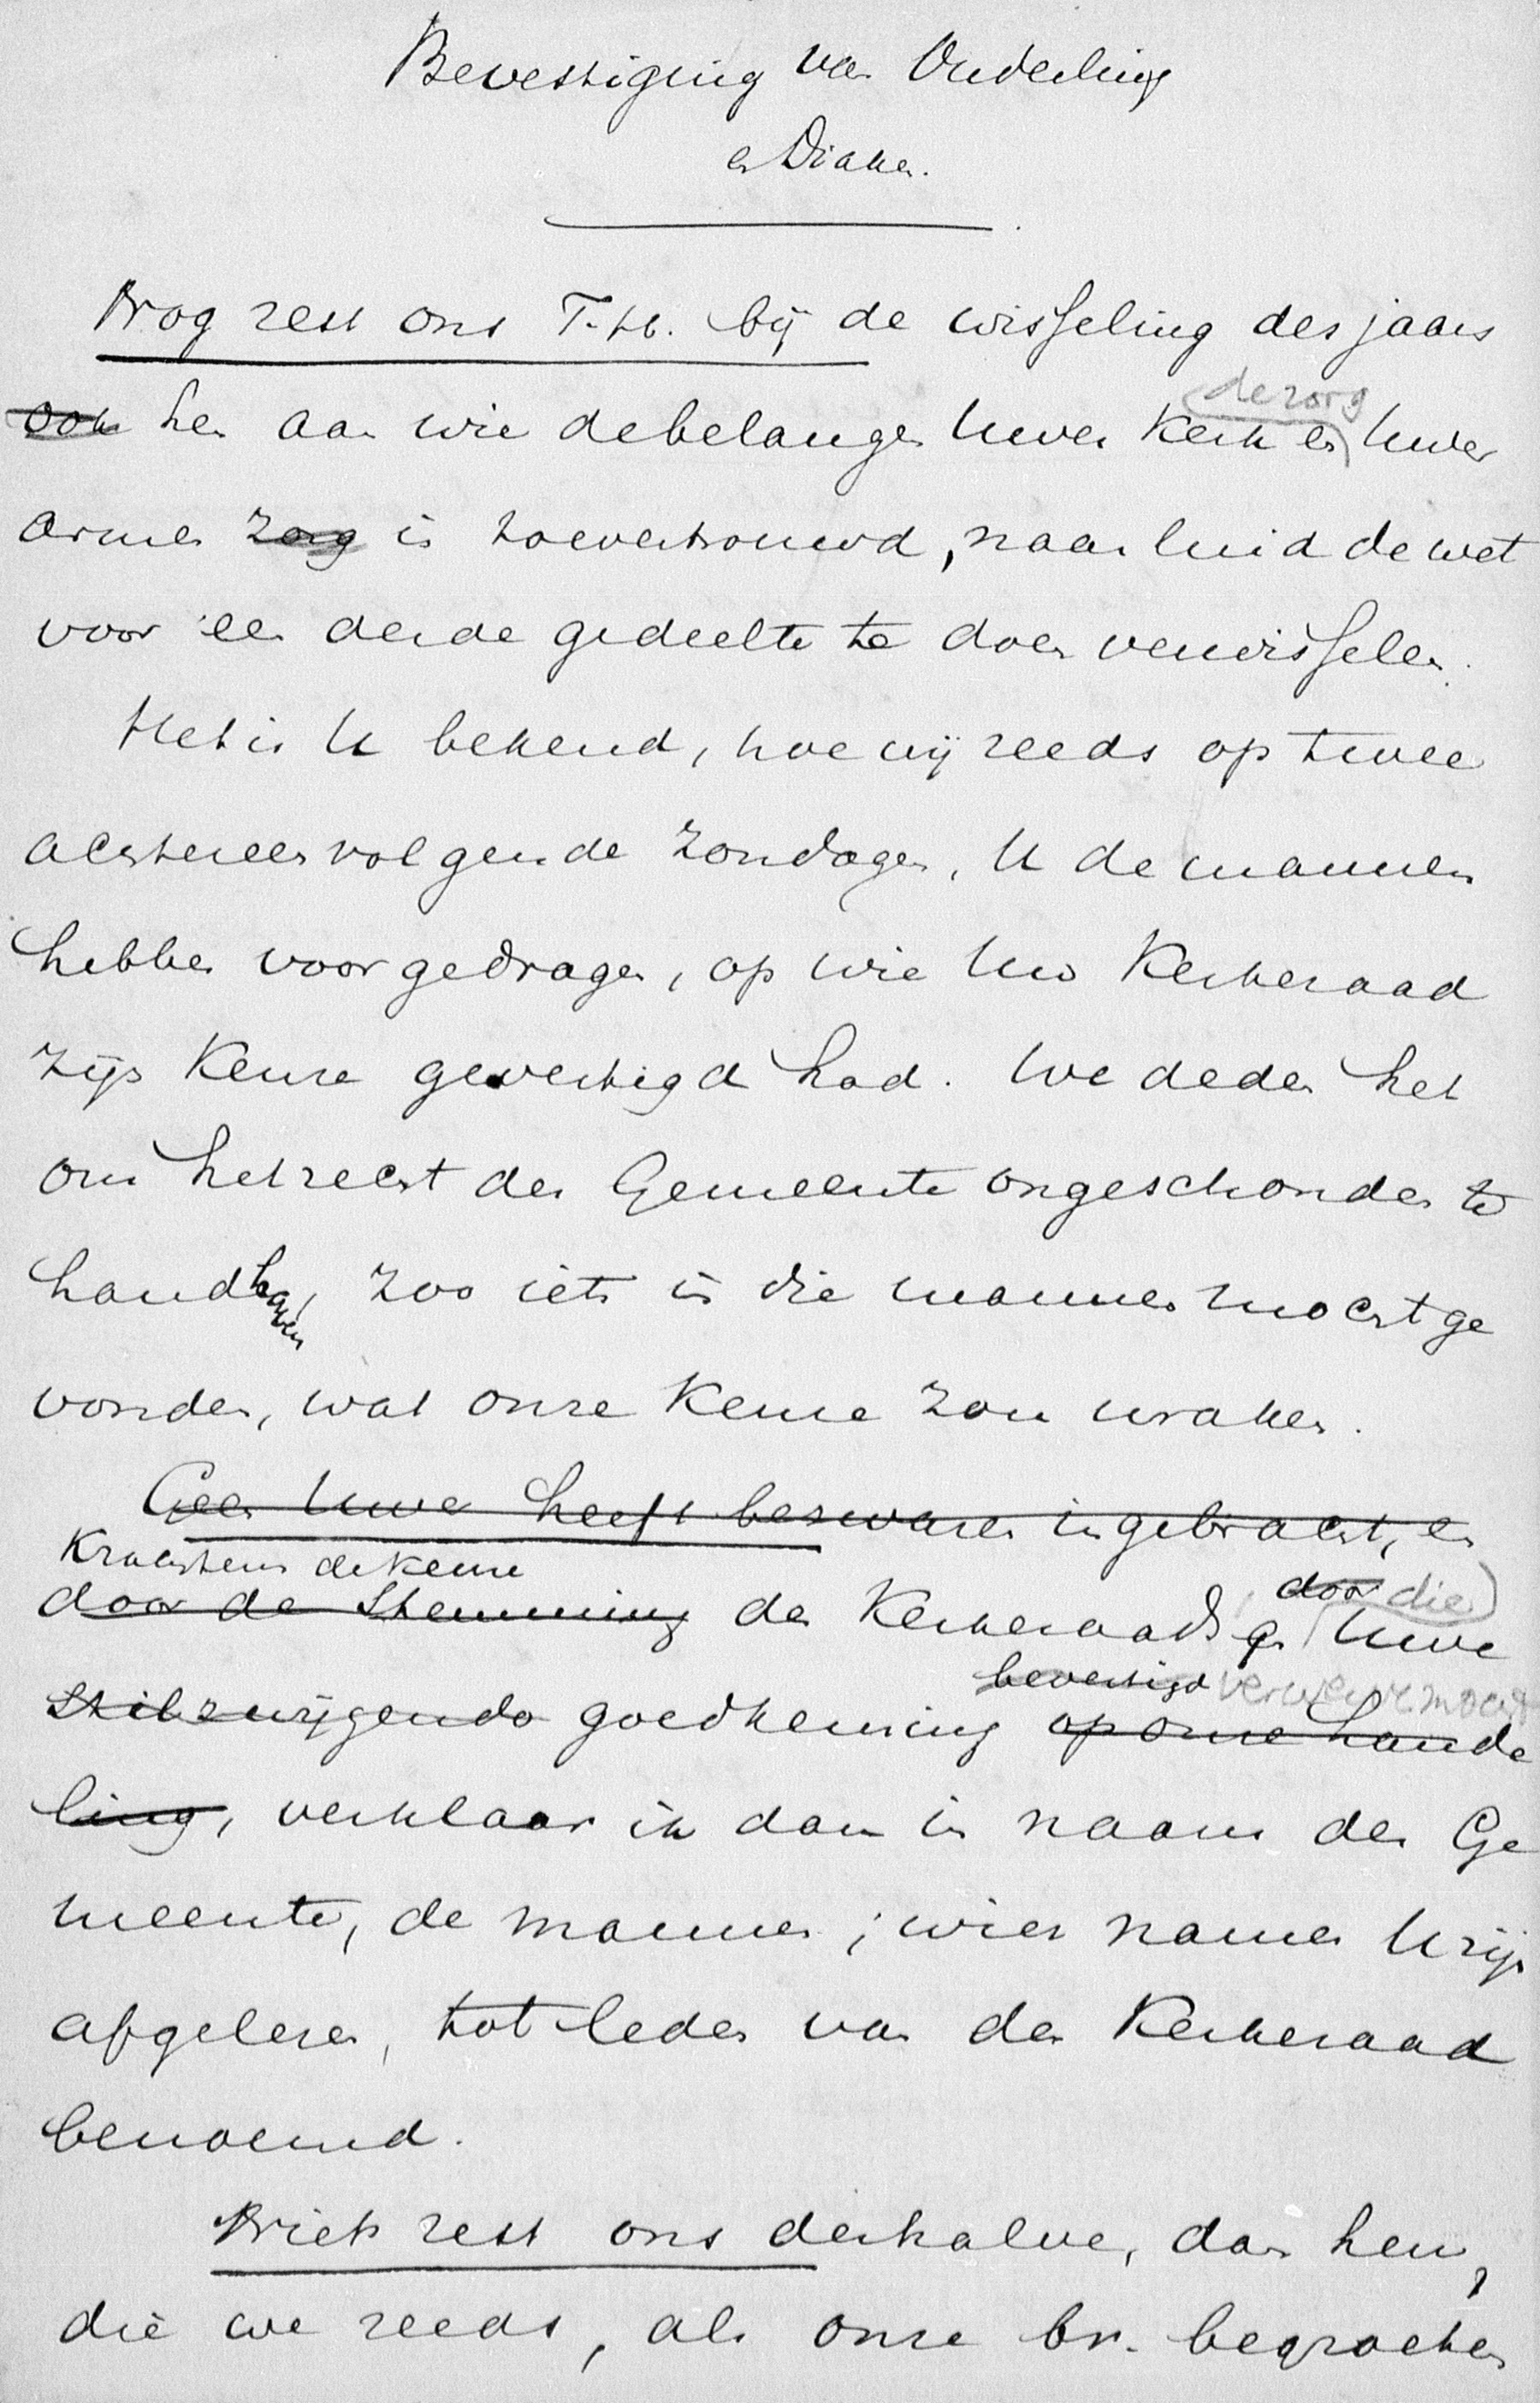 Bevestiging van Ouderling
en Diaken.
Nog rest ons T.H. bij de wisseling des jaars
de zorg
ook hen aan wie de belangen Uwer Kerk en Uwer
armen zorg is toevertrouwd, naar luid de wet
voor een derde gedeelte te doen verwisselen.
Het is U bekend, hoe wij reeds op twee
achtereenvolgende Zondagen, U de mannen
hebben voorgedragen, op wie Uw Kerkeraad
zijn Keure gevestigd had. We deden het
om het recht der Gemeente ongeschonden te
handhaven, zoo iets in die mannen mocht ge
vonden, wat onze Keure zou wraken.
Geen Uwer heeft bezwaren ingebracht, en
Krachtens de keure
door die
door de Stemming des Kerkeraads en Uwe
bevestigd verwierf mocht
stilzwijgende goedkeuring op onze hande
ling, verklaar ik dan in naam der Ge
meente, de mannen, wier namen U zijn
afgelezen, tot leden van den Kerkeraad
benoemd.
Niets rest ons derhalve, dan hen,
die we reeds, als onze br. begroeten